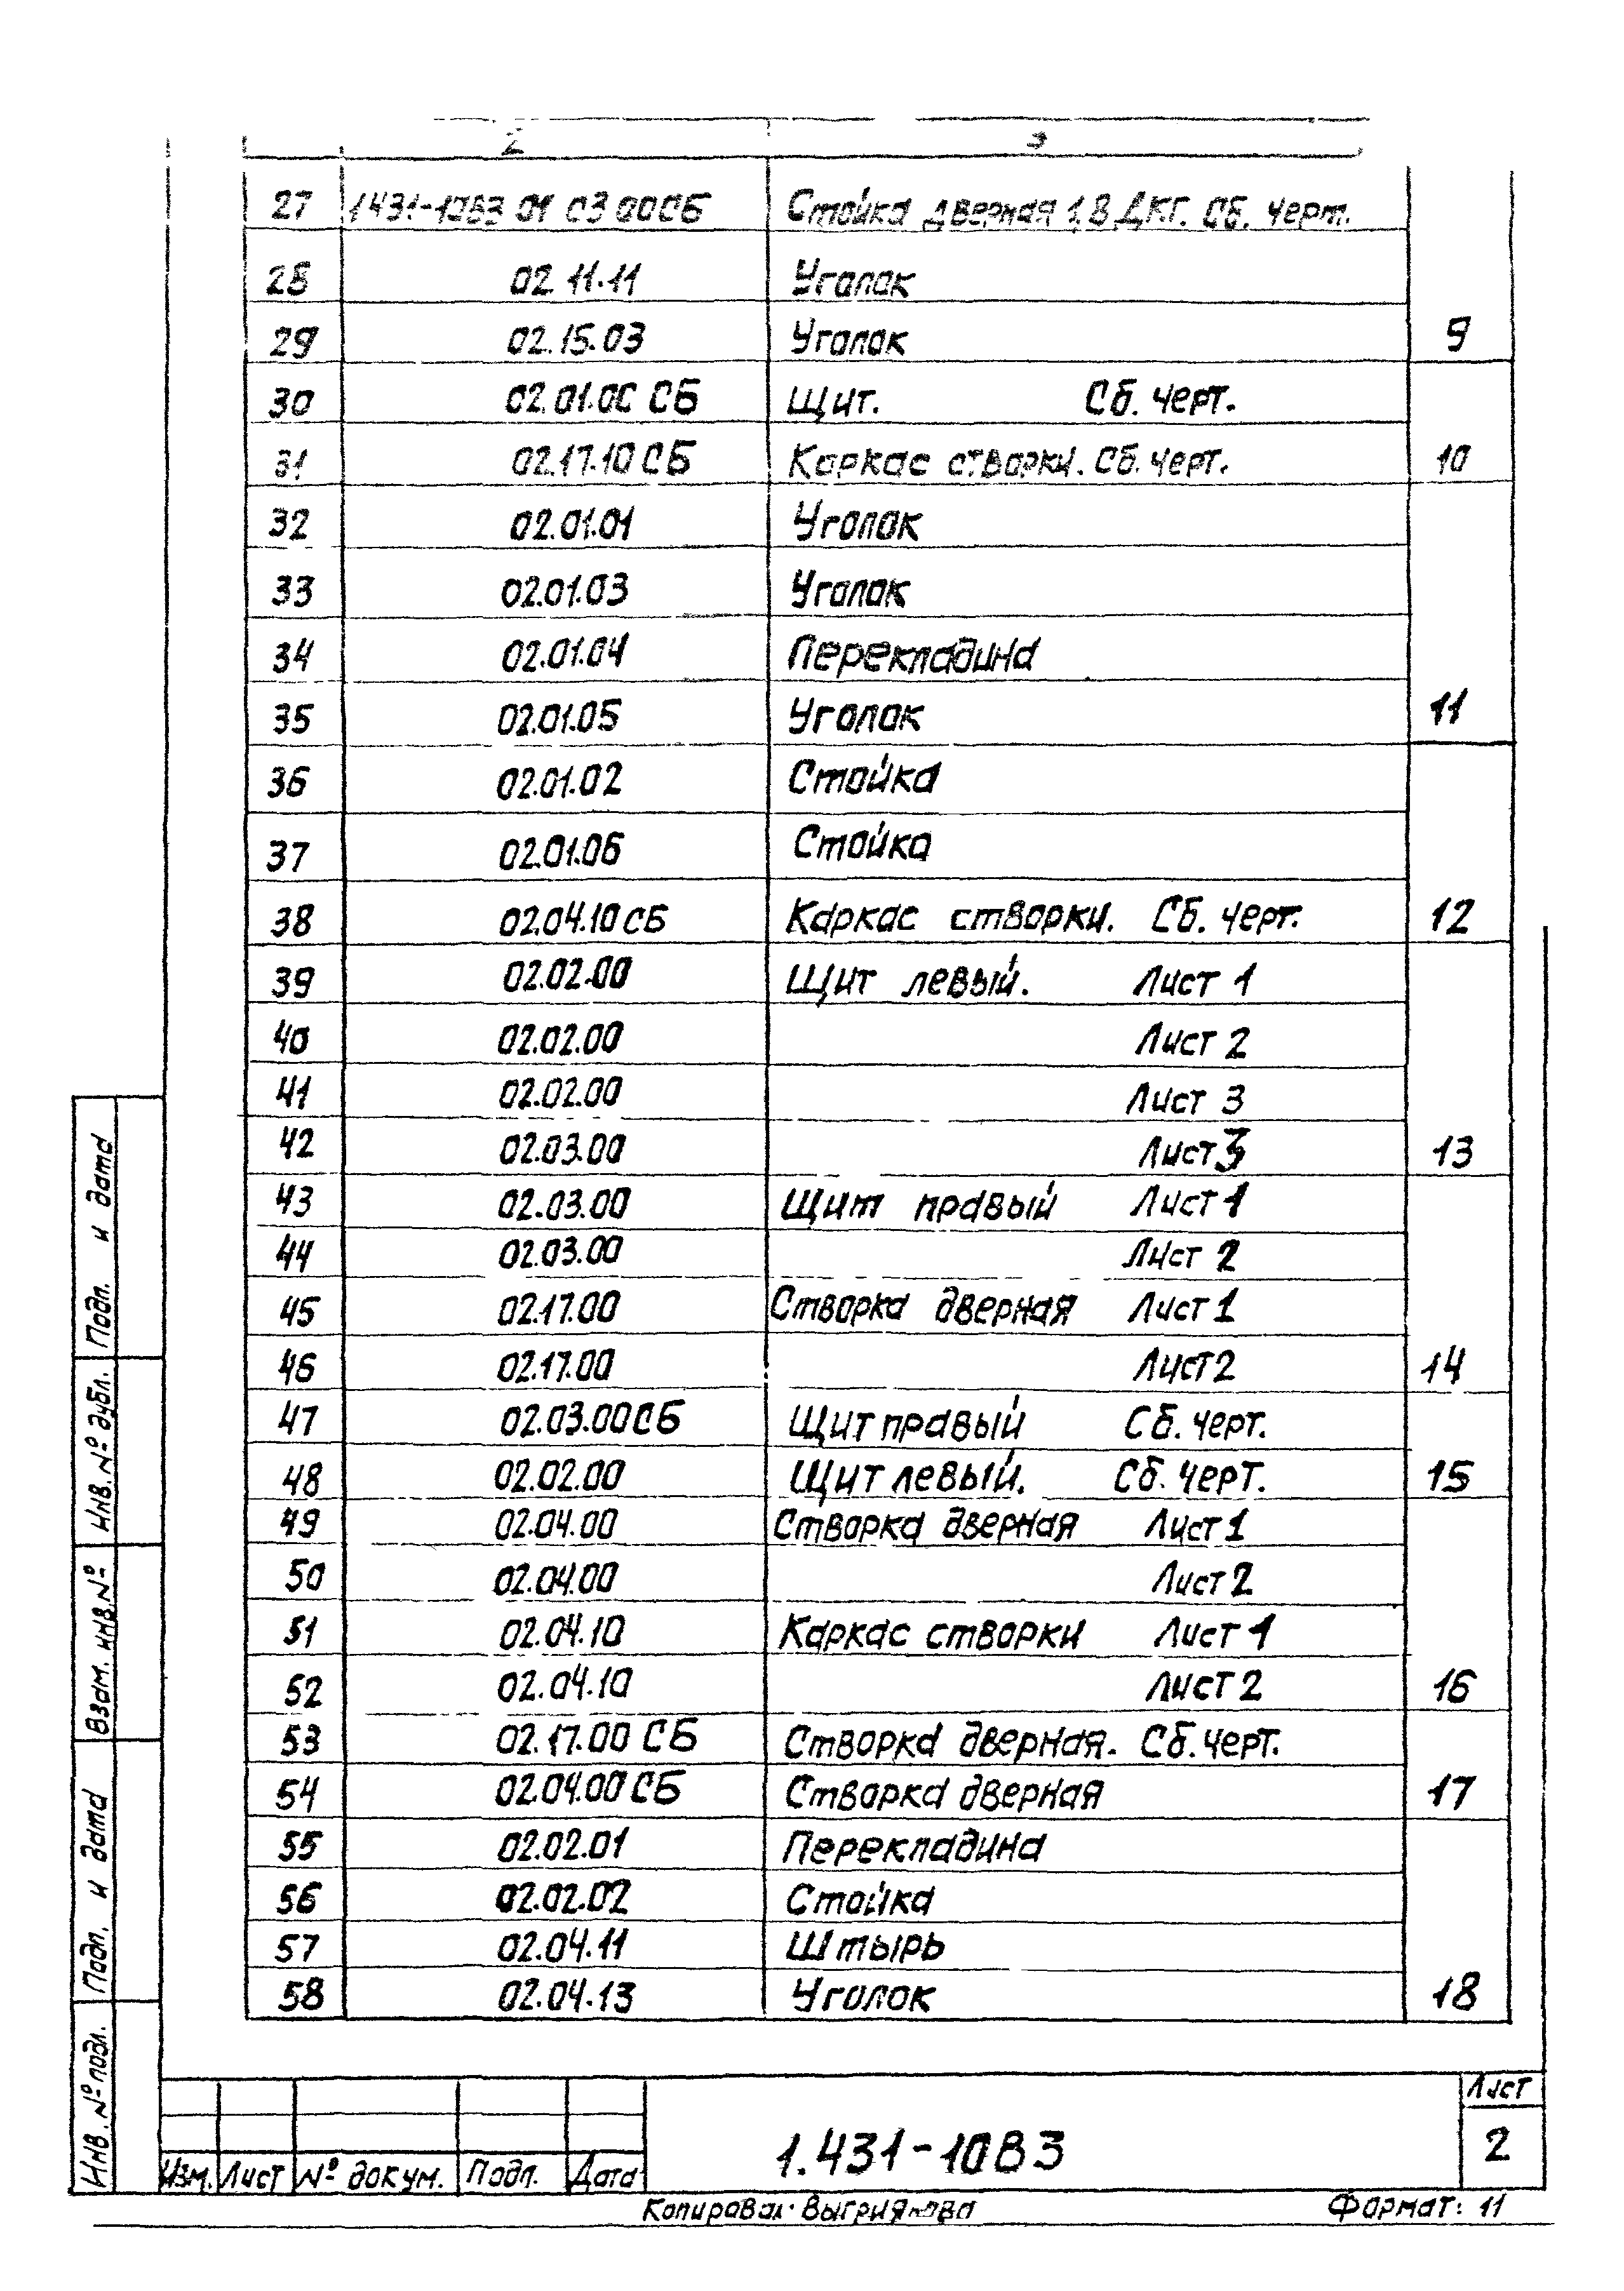 2 3
27 1431-10В3 01 03 00СБ Стойка дверная 1,8 ДКГ. Сб. черт.
28 02 11.11 Уголок
29 02.15.03 Уголок 9
30 02.01.00 СБ Щит. Сб. черт.
31 02.17.10 СБ Каркас створки. Сб. черт. 10
32 02.01.01 Уголок
33 02.01.03 Уголок
34 02.01.04 Перекладина
35 02.01.05 Уголок 11
36 02.01.02 Стойка
37 02.01.06 Стойка
38 02.04.10 СБ Каркас створки. Сб. черт. 12
39 02.02.00 Щит левый. Лист 1
40 02.02.00 Лист 2
41 02.02.00 Лист 3
42 02.03.00 Лист 3 13
43 02.03.00 Щит правый Лист 1
44 02.03.00 Лист 2
45 02.17.00 Створка дверная Лист 1
46 02.17.00 Лист 2 14
47 02.03.00 СБ Щит правый Сб. черт.
48 02.02.00 Щит левый. Сб. черт. 15
49 02.04.00 Створка дверная Лист 1
50 02.04.00 Лист 2
51 02.04.10 Каркас створки Лист 1
52 02.04.10 Лист 2 16
53 02.17.00 СБ Створка дверная. Сб. черт.
54 02.04.00 СБ Створка дверная 17
55 02.02.01 Перекладина
56 02.02.02 Стойка
57 02.04.11 Штырь
58 02.04.13 Уголок 18
Подп. и дата
Инв. № дубл.
Взам. инв. №
Подп. и дата
Инв. № подл.
Изм. Лист № докум. Подп. Дата
1.431-10В3
Лист
2
Копировал: Формат: 11